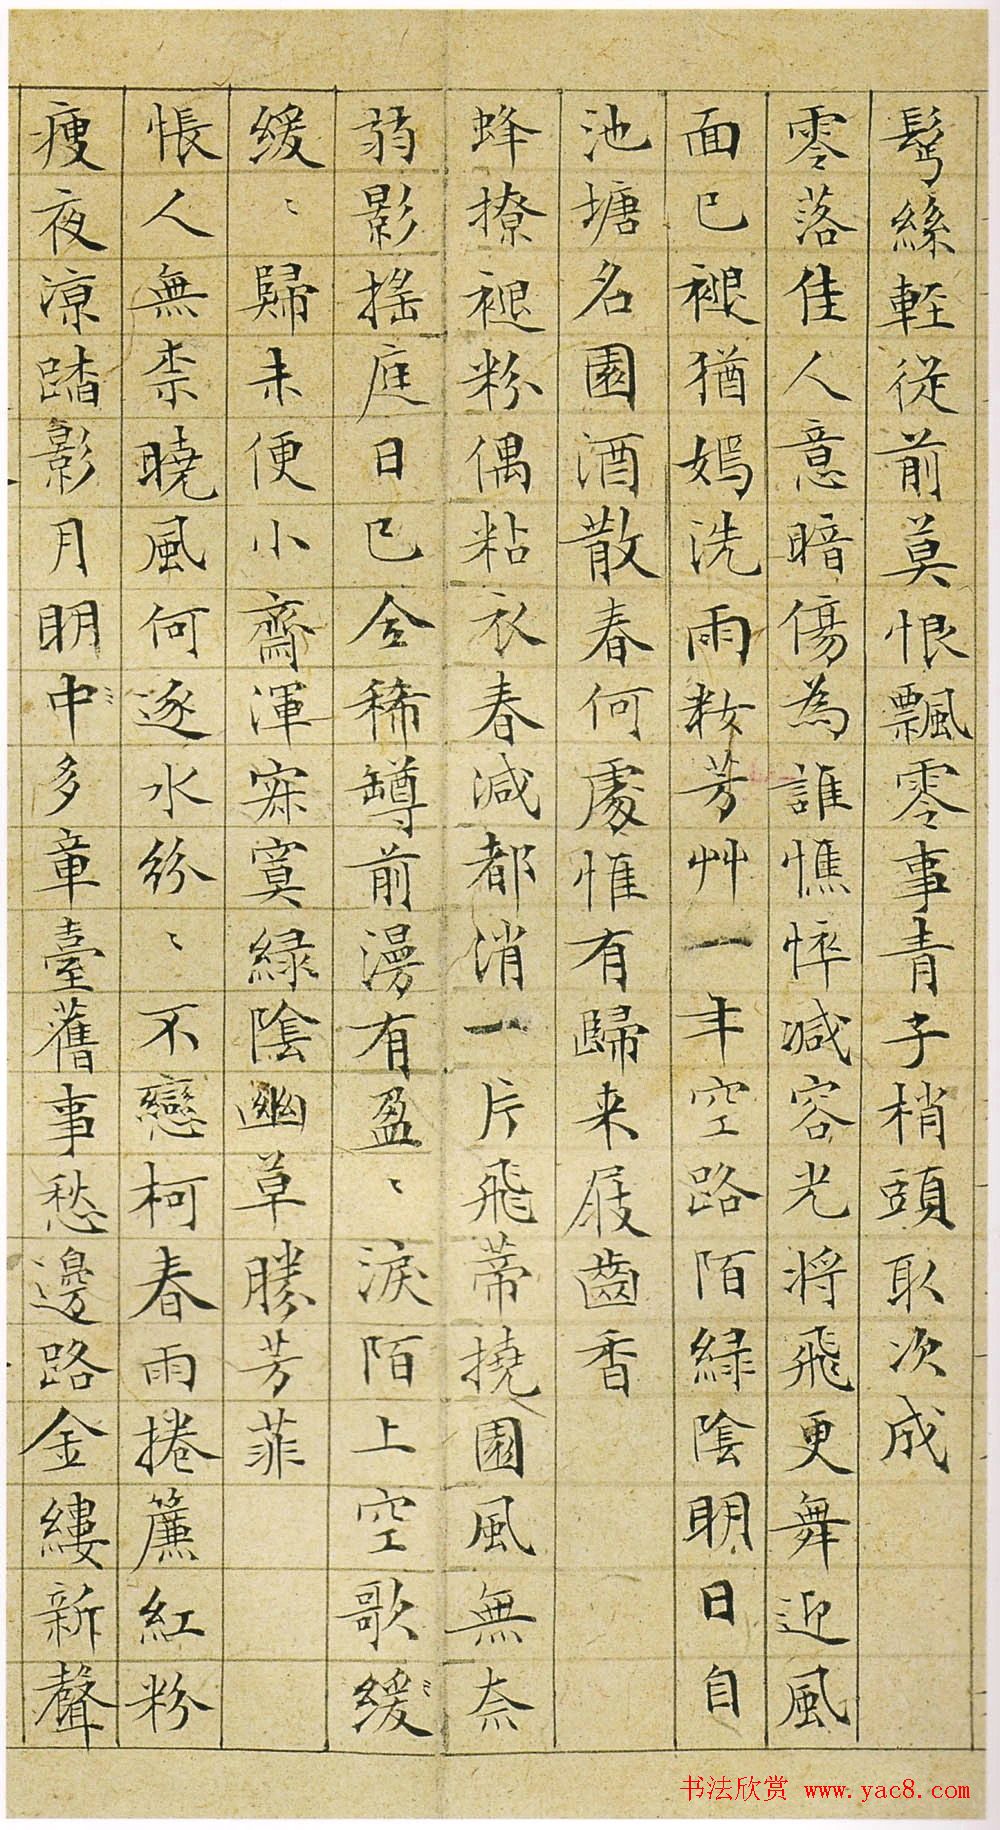 鬂絲輕從前莫恨飄零事青子梢頭取次成
零落佳人意暗傷為誰憔悴减容光將飛更舞迎風
面已褪猶嫣洗雨粧芳艸一年空路陌綠陰明日自
池塘名園酒散春何處惟有歸来屐齒香
蜂撩褪粉偶粘衣春减都消一片飛蒂撓園風無奈
弱影搖庭日已全稀罇前漫有盈〻淚陌上空歌緩〻
緩〻歸未便小齋渾寂寞綠陰幽草勝芳菲
悵人無柰曉風何逐水紛〻不戀柯春雨捲簾紅粉
瘦夜凉踏影月明中多章臺舊事愁邊路金縷新聲
书法欣赏 www.yac8.com